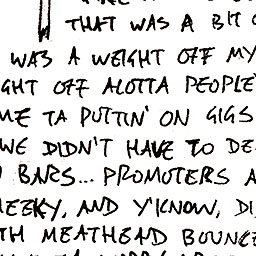 THAT WAS A BIT
WAS A WEIGHT OFF MY
GHT OFF ALOTTA PEOPLE
ME TA PUTTIN' ON GIGS
WE DIDN'T HAVE TO DE
BARS... PROMOTERS A
HEEKY, AND Y'KNOW, DI
TH MEATHEAD BOUNCE